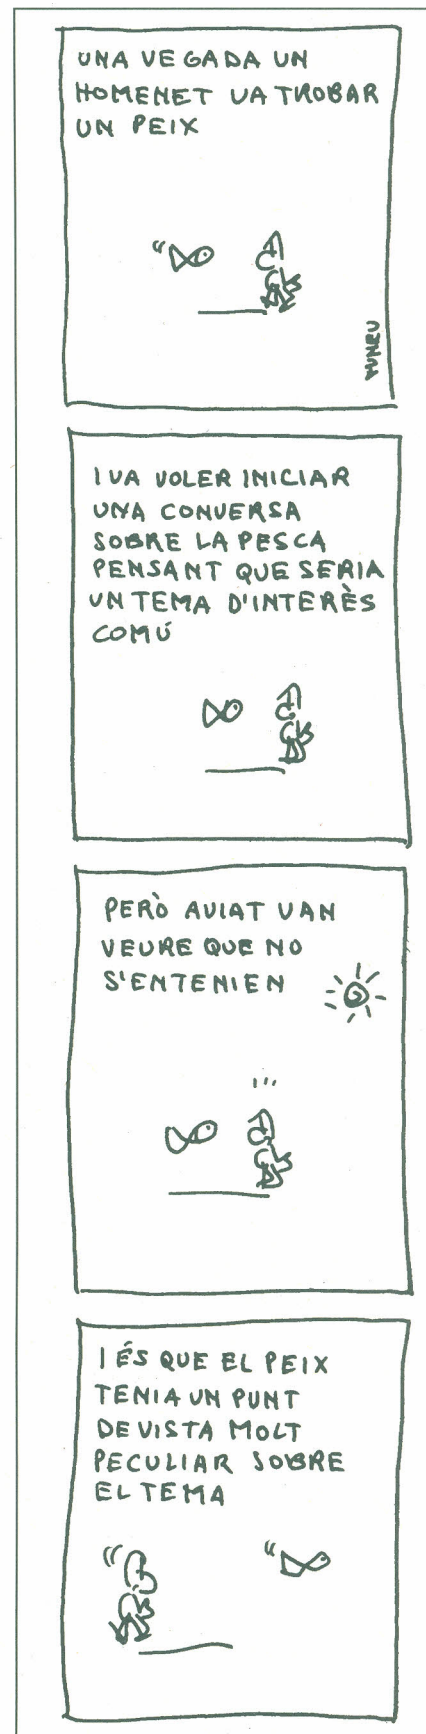 UNA VEGADA UN
HOMENET VA TROBAR
UN PEIX
I VA VOLER INICIAR
UNA CONVERSA
SOBRE LA PESCA
PENSANT QUE SERIA
UN TEMA D'INTERÈS
COMÚ
PERÒ AVIAT VAN
VEURE QUE NO
S'ENTENIEN
I ÉS QUE EL PEIX
TENIA UN PUNT
DE VISTA MOLT
PECULIAR SOBRE
EL TEMA